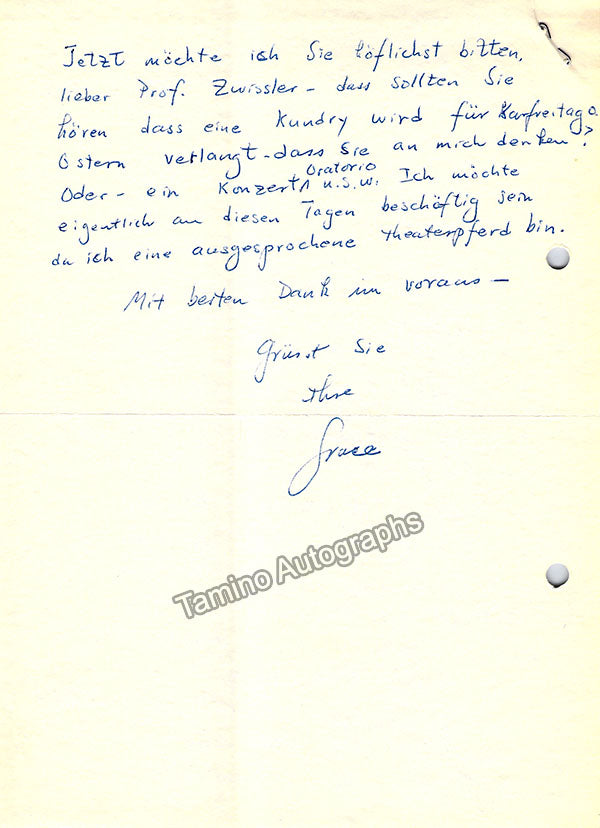 Jetzt möchte ich Sie höflichst bitten,
lieber Prof. Zwissler – dass sollten Sie
hören dass eine Kundry wird für Karfreitag o.
Ostern verlangt – dass Sie an mich denken?
Oratorio
Oder – ein Konzert u.s.w. Ich möchte
eigentlich an diesen Tagen beschäftig sein
da ich eine ausgesprochene theaterpferd bin.
Mit besten Dank im voraus –
Grüsst Sie
Ihre
Grace
Tamino Autographs